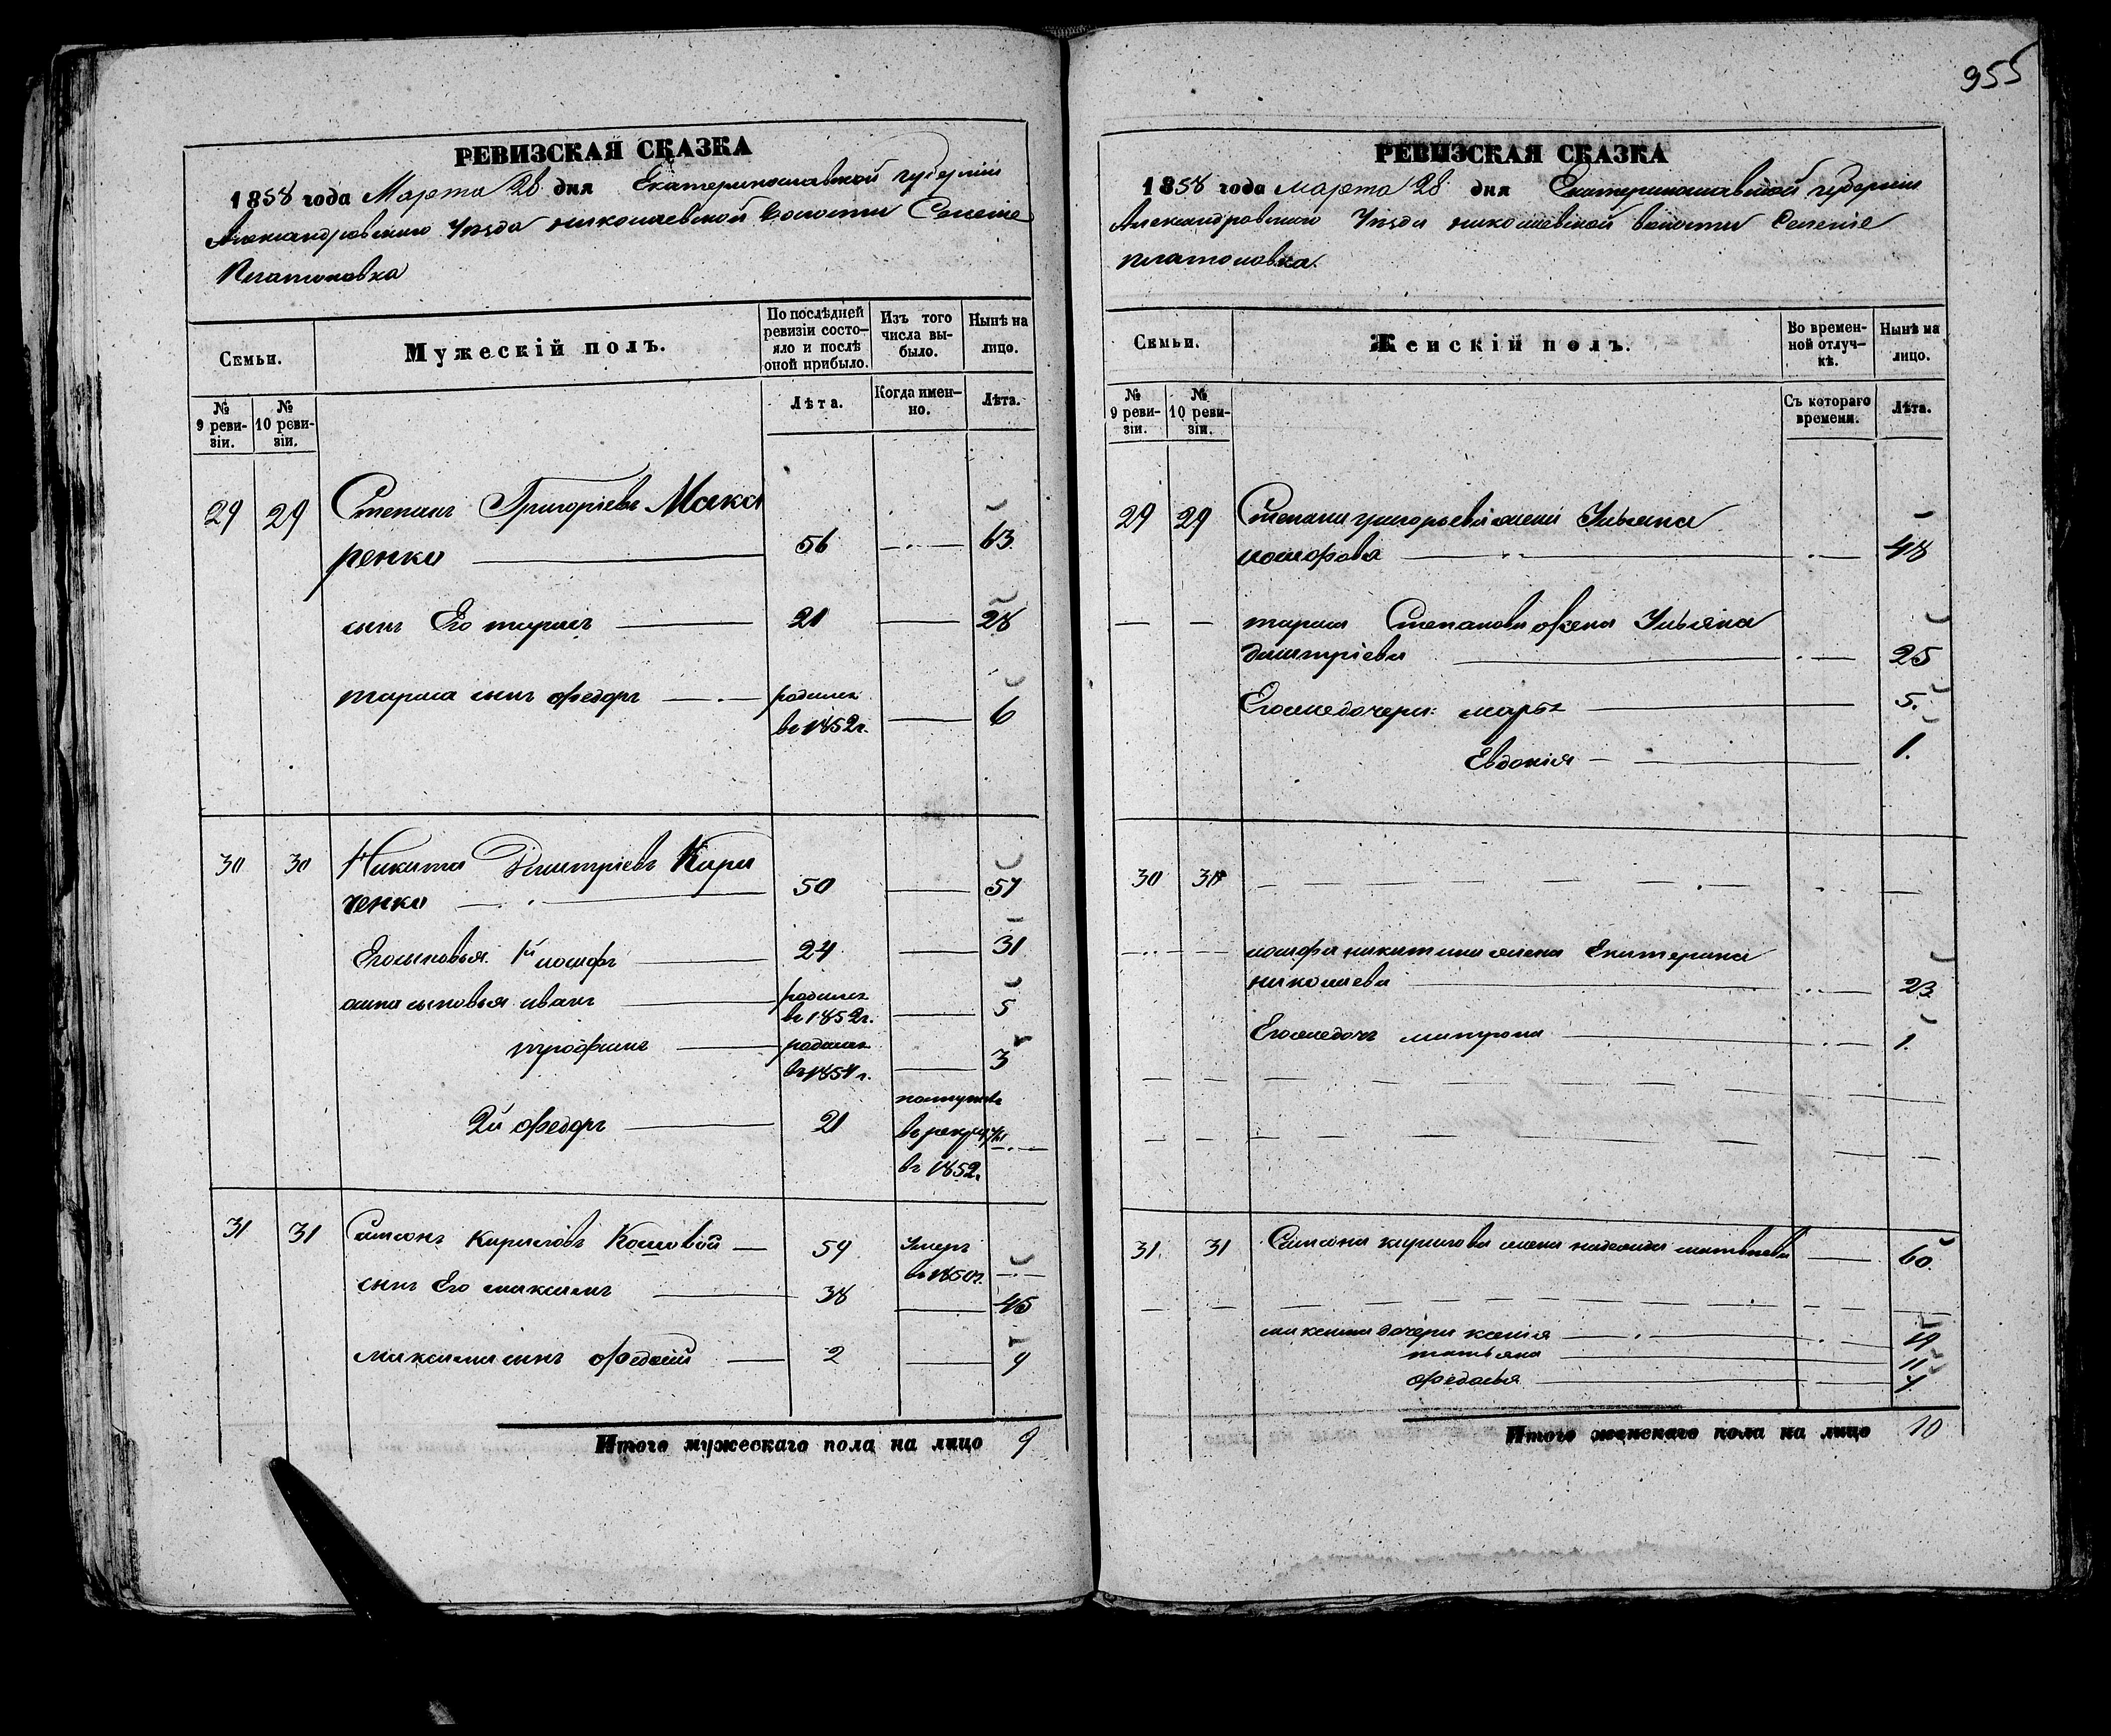 955
РЕВИЗСКАЯ СКАЗКА
1858 года Марта 28 дня Екатеринославской губерніи
Александровскаго Уѣзда николаевской волости Селеніе
Платоновка
Семьи.
Мужескій полъ.
По послѣдней ревизіи состояло и послѣ оной прибыло.
Изъ того числа выбыло.
Нынѣ на лицо.
№ 9 ревизіи.
№ 10 ревизіи.
Лѣта.
Когда именно.
Лѣта.
29 29 Степанъ Григоріевъ Мака
ренко 56 63
сынъ Его тарасъ 21 28
тараса сынъ федоръ родился
въ 1852г. 6
30 30 Никита Дмитріевъ Кири
ченко 50 57
Его сыновья 1й іосифъ 24 31
іосифа сыновья иванъ родился
въ 1852г. 5
трофимъ родился
въ 1854г. 3
2й федоръ 21 поступилъ
въ рекруты
въ 1852.
31 31 Симонъ Кириловъ Кошовой 59 Умеръ
въ 1850г.
сынъ Его максимъ 38 45
максима сынъ федосій 2 9
Итого мужескаго пола на лицо 9
РЕВИЗСКАЯ СКАЗКА
1858 года марта 28 дня Екатеринославской губерніи
Александровскаго Уѣзда николаевской волости Селеніе
платоновка.
Семьи.
Женскій полъ.
Во временной отлучкѣ.
Нынѣ на лицо.
№ 9 ревизіи.
№ 10 ревизіи.
Съ котораго времени.
Лѣта.
29 29 Степана григорьева жена Ульяна
48
тараса Степанова жена Ульяна
дмитріева 25
Его же дочери: марья 5.
Евдокія 1.
30 30
іосифа никитина жена Екатерина
николаева 23
Его же дочь матрона 1.
31. 31 Симона кирилова жена матвѣева 60.
максима дочери ксенія 19
татьяна 11
федосья
Итого женскаго пола на лицо 10